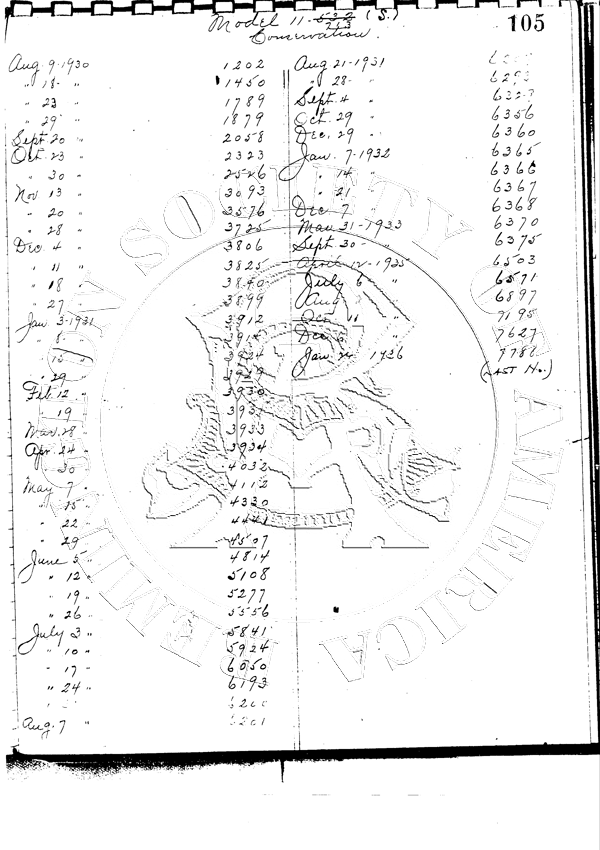 105
Model 11- 522/213 (S.)
Conservation.
Aug. 9-1930 1202
" 18- " 1450
" 23 " 1789
" 29 " 1879
Sept. 20 " 2058
Oct. 23 " 2323
" 30 " 2526
Nov 13 " 3093
" 20 " 3576
" 28 " 3725
Dec. 4 " 3806
" 11 " 3825
" 18 " 3840
" 27 " 3899
Jan. 3-1931 3912
" 8
15 3924
29 3929
Feb. 12 3930
19
Mar. 28 3933
Apr. 24 " 3934
30 4032
May 7 4112
15 4330
22 4441
29 4507
June 5 " 4814
" 12 5108
" 19 " 5277
" 26 " 5556
July 3 " 5841
" 10 " 5924
" 17 " 6050
" 24 " 6193
6200
Aug. 7 " 6201
Aug 21-1931
" 28- " 6293
Sept. 4 "
Oct. 29 " 6356
Dec. 29 " 6360
Jan. 7-1932 6365
" 14 " 6366
" 21 " 6367
Dec 7 " 6368
Mar. 31-1933 6370
Sept. 30 - " 6375
April 12-1935 6503
July 6 " 6571
Aug 6897
11 7195
Dec 7627
Jan. 24 1936
(LAST No.)
REMINGTON SOCIETY OF AMERICA